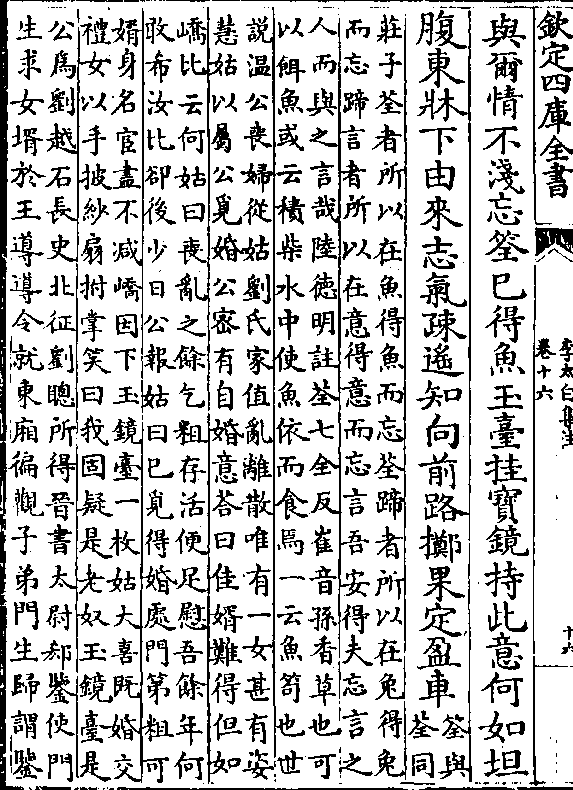 欽定四庫全書
李太白集注
卷十六
十六
與爾情不淺忘筌已得魚玉臺挂寳鏡持此意何如坦
腹東牀下由來志氣疎遥知向前路擲果定盈車
筌與
荃同
莊子荃者所以在魚得魚而忘荃蹄者所以在兔得兔
而忘蹄言者所以在意得意而忘言吾安得夫忘言之
人而與之言哉陸徳明註荃七全反崔音孫香草也可
以餌魚或云積柴水中使魚依而食焉一云魚笱也世
説温公喪婦從姑劉氏家值亂離散唯有一女甚有姿
慧姑以屬公覓婚公宻有自婚意荅曰佳婿難得但如
嶠比云何姑曰喪亂之餘乞粗存活便足慰吾餘年何
敢希汝比卻後少日公報姑曰已覓得婚處門第粗可
婿身名宦盡不减嶠因下玉鏡臺一枚姑大喜既婚交
禮女以手披紗扇拊掌笑曰我固疑是老奴玉鏡臺是
公為劉越石長史北征劉聰所得晉書太尉郄鑒使門
生求女壻於王導導令就東廂徧觀子弟門生歸謂鑒